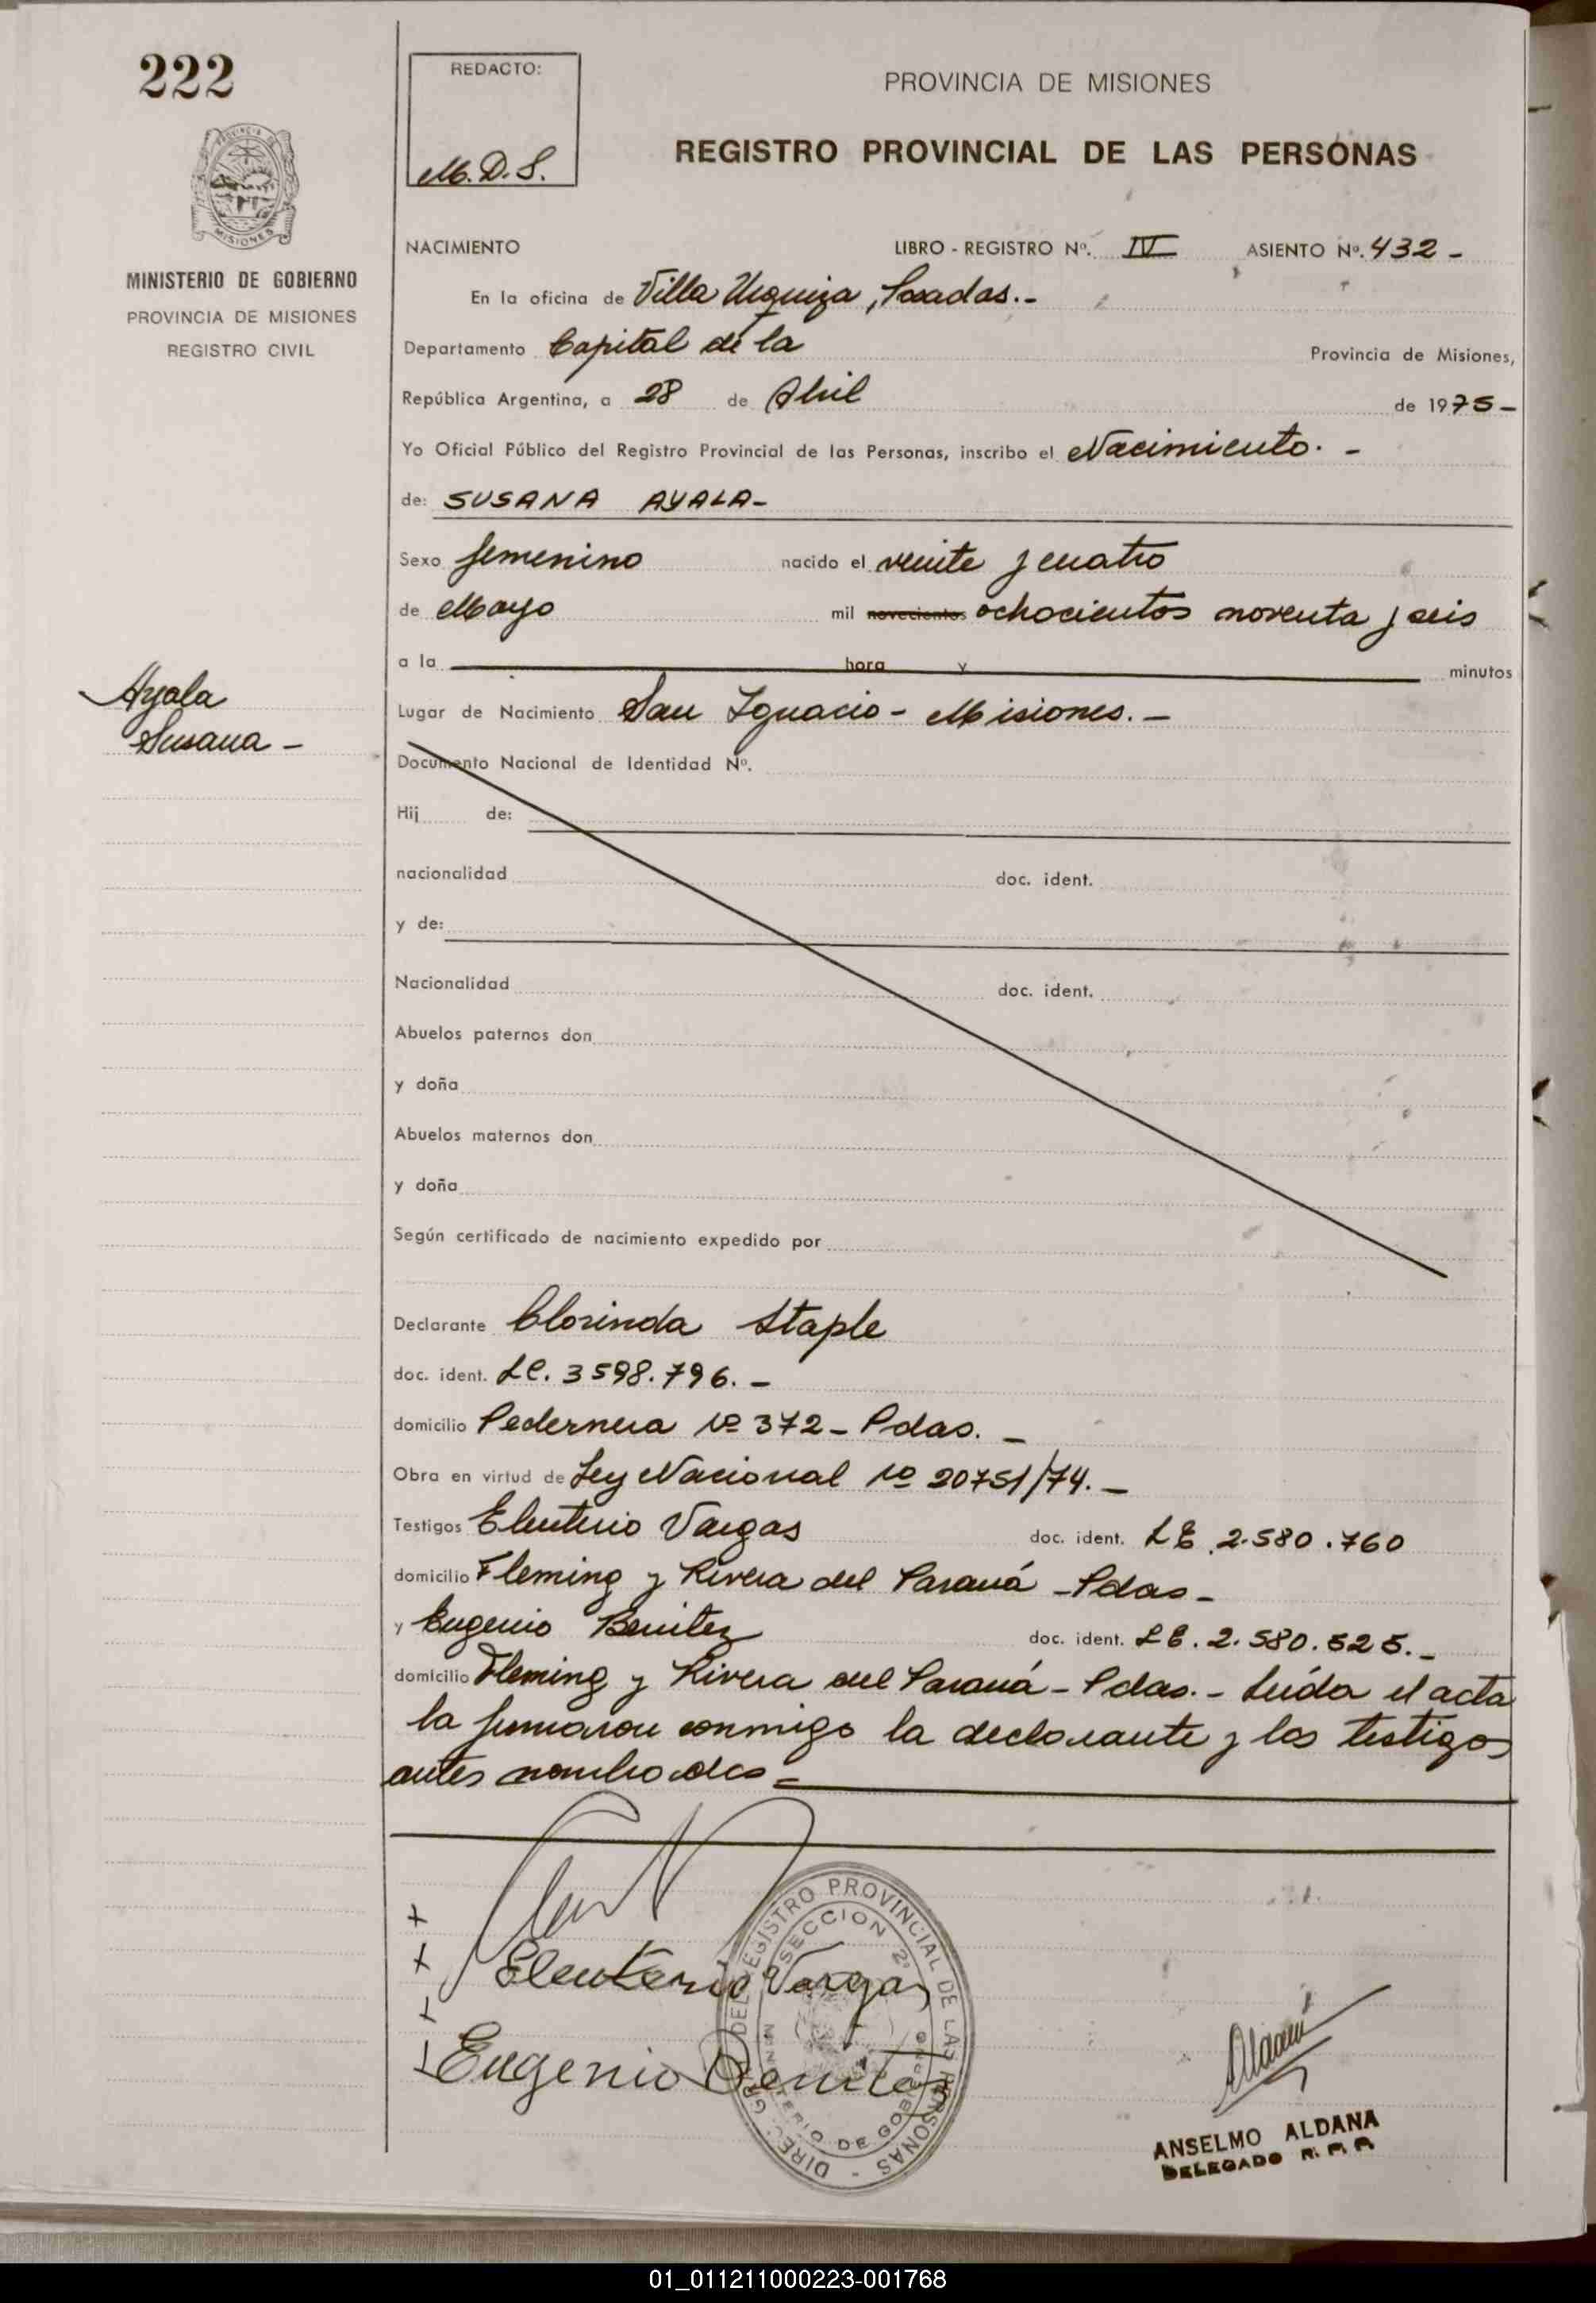 222
REDACTO:
M.D.S.
PROVINCIA DE MISIONES
REGISTRO PROVINCIAL DE LAS PERSONAS
PROVINCIA DE
MISIONES
MINISTERIO DE GOBIERNO
PROVINCIA DE MISIONES
REGISTRO CIVIL
NACIMIENTO LIBRO - REGISTRO Nº. IV ASIENTO Nº. 432 -
En la oficina de Villa Urquiza, Posadas.-
Departamento Capital de la Provincia de Misiones,
República Argentina, a 28 de Abril de 1975-
Yo Oficial Público del Registro Provincial de las Personas, inscribo el Nacimiento. -
de: SUSANA AYALA-
Sexo femenino nacido el veinte y cuatro
de Mayo mil novecientos ochocientos noventa y seis
a la hora y minutos
Ayala
Susana -
Lugar de Nacimiento San Ignacio - Misiones. -
Documento Nacional de Identidad Nº.
Hij de:
nacionalidad doc. ident.
y de:
Nacionalidad doc. ident.
Abuelos paternos don
y doña
Abuelos maternos don
y doña
Según certificado de nacimiento expedido por
Declarante Clorinda Staple
doc. ident. LC. 3598.796. -
domicilio Pedernera Nº 372 - Pdas. -
Obra en virtud de Ley Nacional Nº 20751/74. -
Testigos Eleuterio Vargas doc. ident. LE. 2.580.760
domicilio Fleming y Rivera del Paraná - Pdas -
y Eugenio Benitez doc. ident. LE. 2.580.525. -
domicilio Fleming y Rivera del Paraná - Pdas. - Leída el acta
la firmaron conmigo la declarante y los testigos
antes nombrados =
Eleuterio Vargas
Eugenio Benitez
DIREC. GRAL. DEL REGISTRO PROVINCIAL DE LAS PERSONAS -
SECCION 2ª
MINISTERIO DE GOBIERNO
ANSELMO ALDANA
DELEGADO R. P. P.
01_011211000223-001768